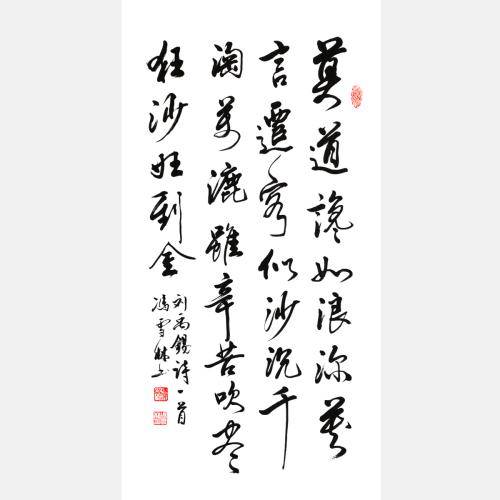 莫道讒如浪深莫
言遷客似沙沉千
淘萬漉雖辛苦吹尽
狂沙始到金
刘禹錫詩一首
馮雪林书